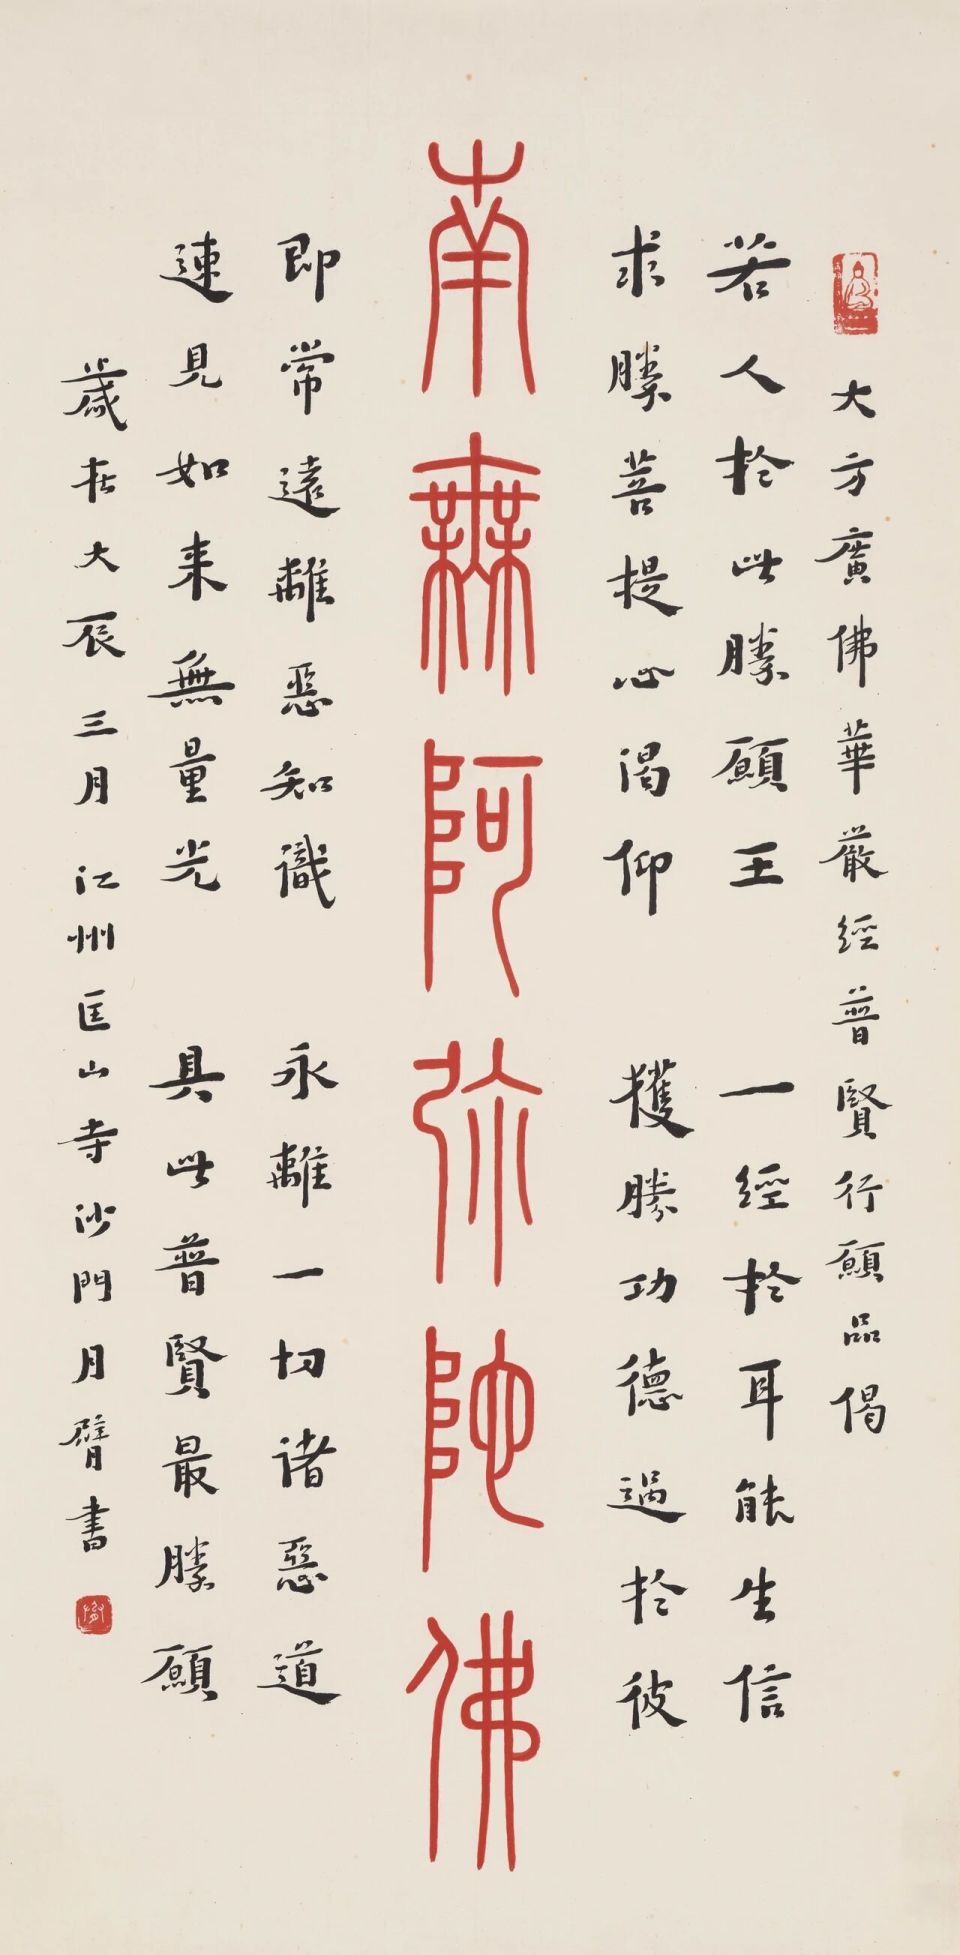 大方廣佛華嚴經普賢行願品偈
若人於此勝願王 一經於耳能生信
求勝菩提心渴仰 獲勝功德過於彼
南無阿彌陀佛
即常遠離惡知識 永離一切諸惡道
速見如來無量光 具此普賢最勝願
歲在大辰三月 江州匡山寺沙門月臂書